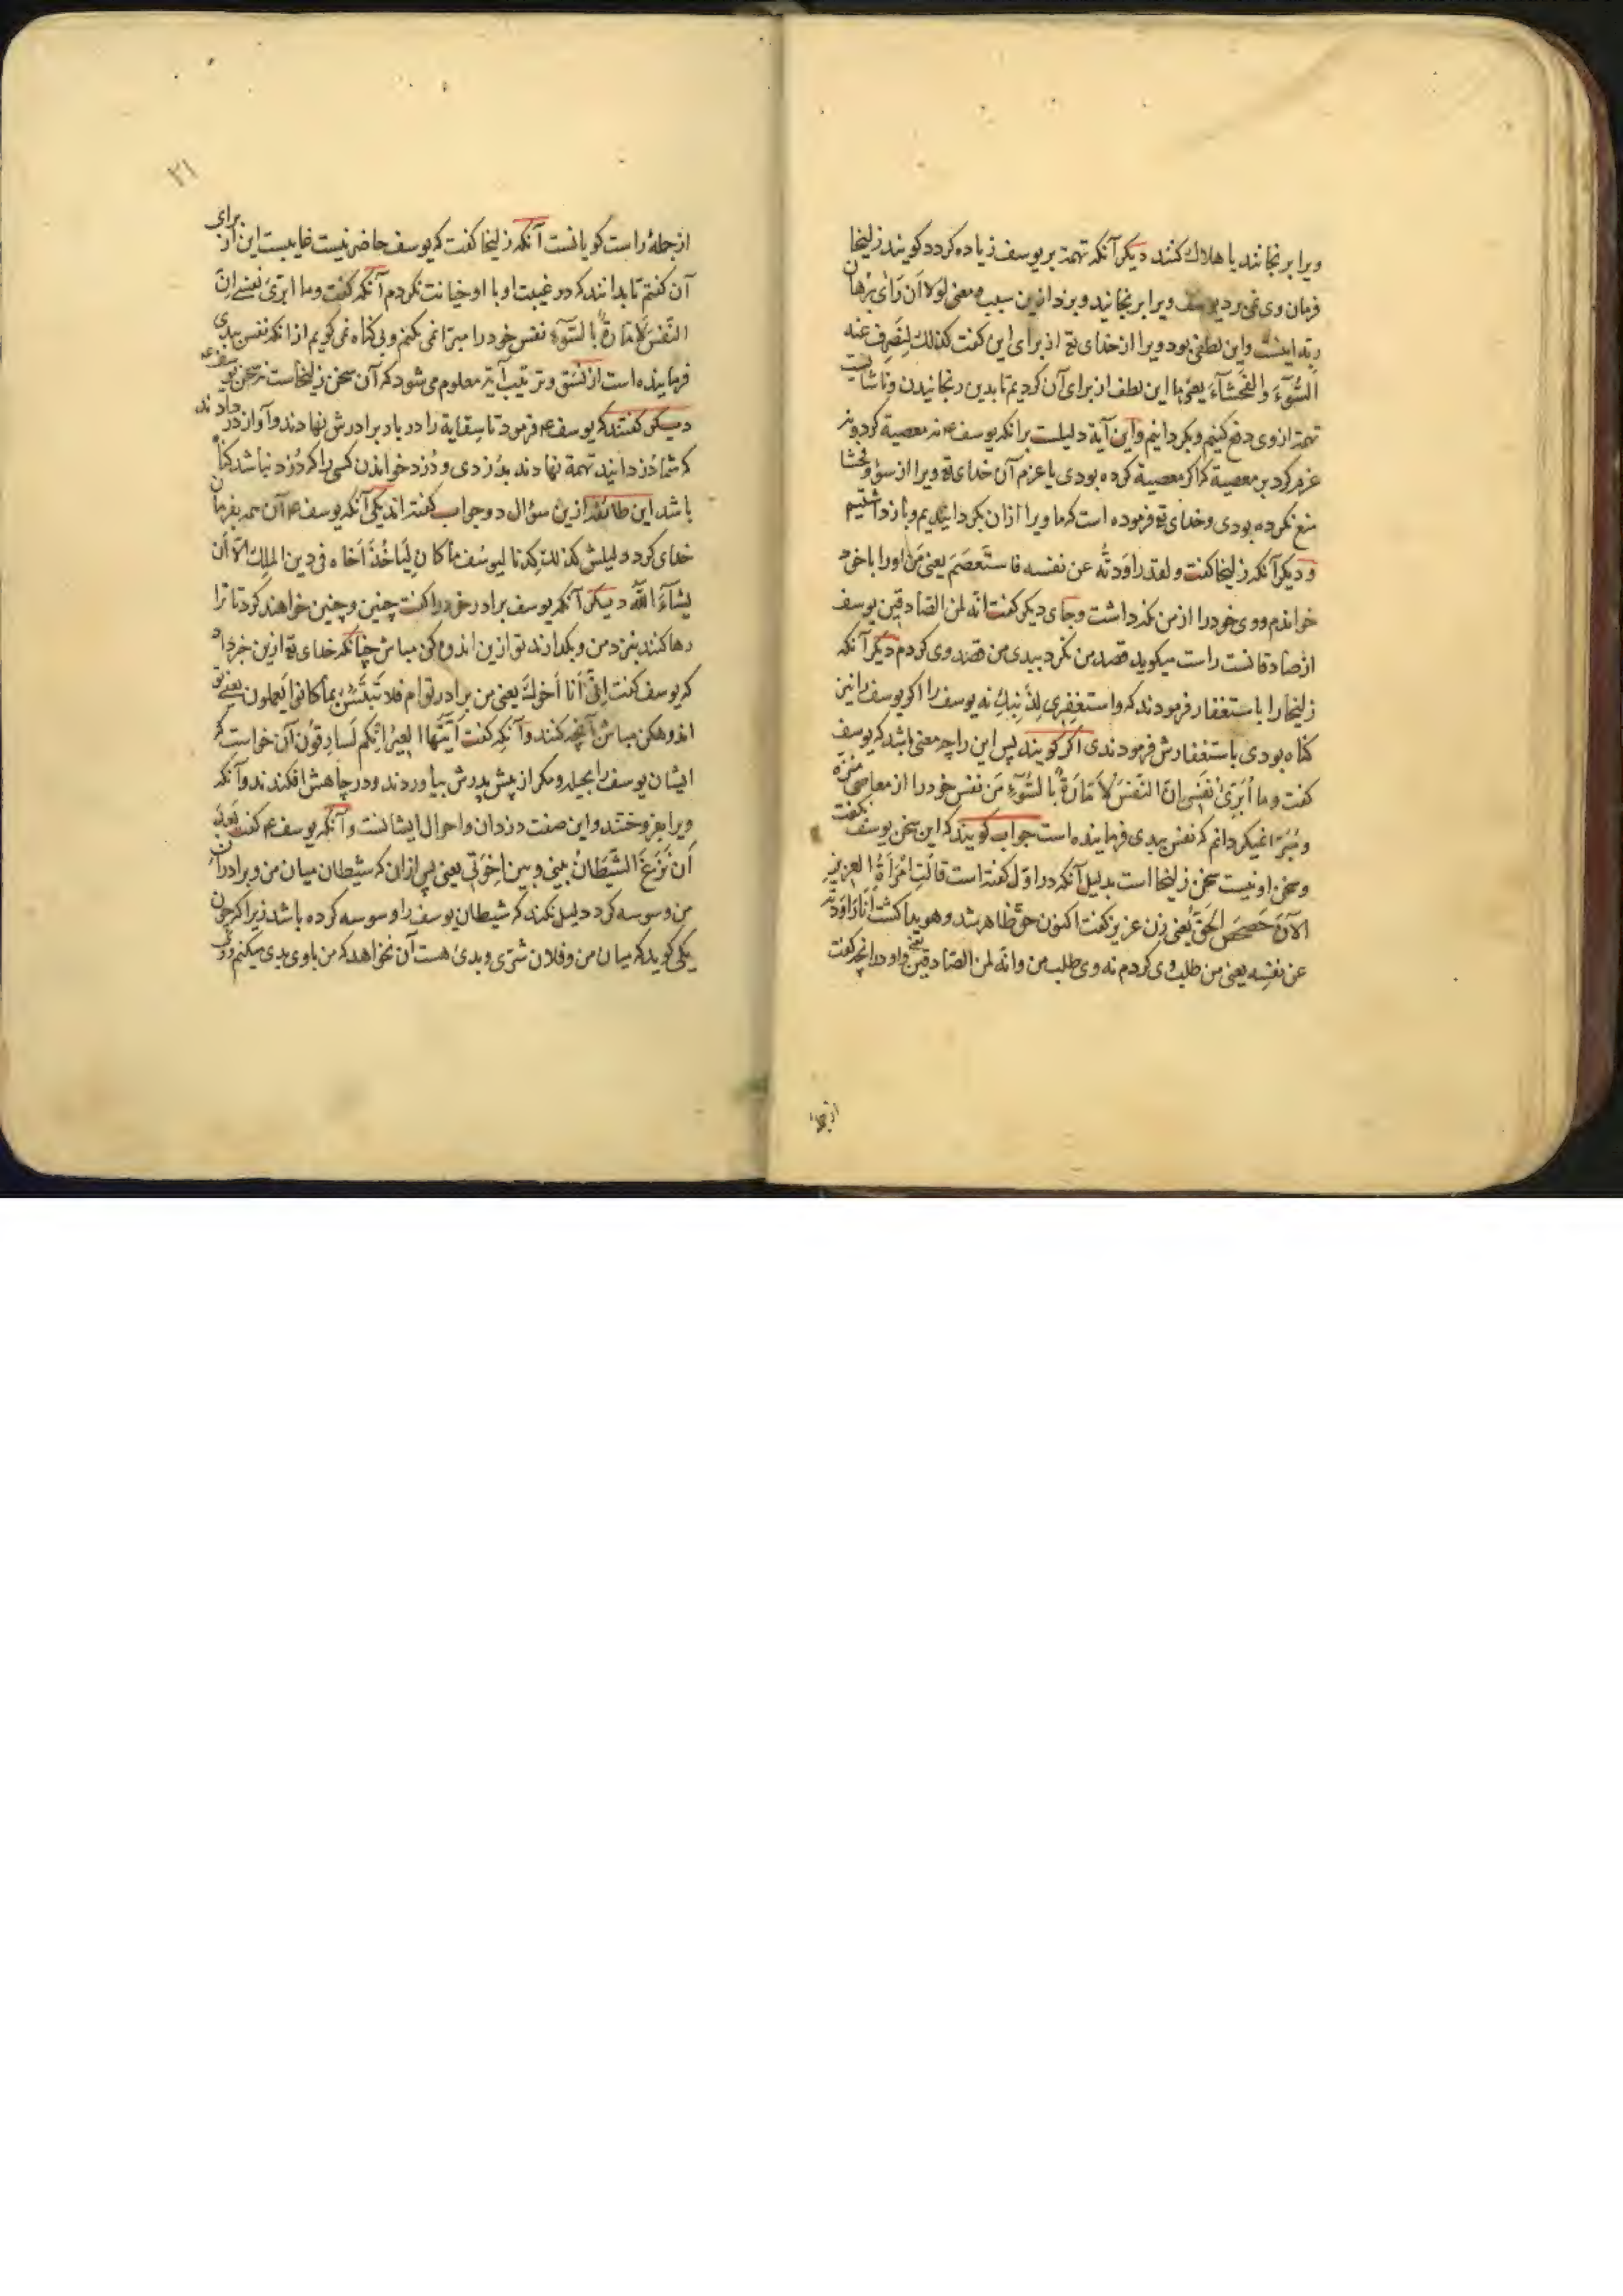 ویرا برنجانند یا هلاك کنند دیکر آنکه تهمة بر یوسف زیاده کردد کویند زلیخا
فرمان وی نمی برد یوسف ویرا برنجانید و بزد ازین سبب و معنی لولا أن رأى برهان
ربّه اینست واین لطفی بود ویرا از خدای تع از برای این کفت کذلك لنصرف عنه
السُّوٓءَ والفحشآءَ یعنی ما این لطف از برای آن کردیم تا بدین رنجانیدن وناشایست
تهمة از وی دفع کنیم وبکردانیم واین آیة دلیلست برانکه یوسف عم نه معصیة کرد ونه
عزم کرد بر معصیة که اکر معصیة کرده بودی یا عزم آن خدای تع ویرا از سوء وفحشا
منع نکرده بودی وخدای تع فرموده است که ما ویرا ازان بکردانیدیم وباز داشتیم
ودیکر آنکه زلیخا کفت ولقد راودتُّه عن نفسه فاستَعصَمَ یعنی من اورا با خود
خواندم ووی خودرا از من نکه داشت وجای دیکر کفت انّه لمن الصّادقین یوسف
از صادقانست راست میکوید قصد من نکرد ببدی من قصد وی کردم دیکر آنکه
زلیخا را باستغفار فرمودند که واستغفری لذنبكِ نه یوسف را اکر یوسف را نیز
کناه بودی باستغفارش فرمودندی اکر کویند پس این را چه معنی باشد که یوسف
کفت وما اُبَرّیُٔ نفسی انّ النّفسَ لأمّارَةٌ بالسُّوٓءِ من نفس خودرا از معاصی منزّه
ومُبَرّا نمیکردانم که نفس ببدی فرماینده است جواب کویند که این سخن یوسف نکفت
وسخن او نیست سخن زلیخا است بدلیل آنکه در اوّل کفته است قالَتِ امْرَأةُ العزیزِ
الآنَ حَصحَصَ الحَقُّ یعنی زن عزیز کفت اکنون حق ظاهر شد وهویدا کشت أنا راودته
عن نفسِه یعنی من طلب وی کردم نه وی طلب من وانّه لمن الصّادقین واو در آنچه کفت
از جملهٔ
۲۱
از جملهٔ راست کویانست آنکه زلیخا کفت که یوسف حاضر نیست غایبست این از برای
آن کفتم تا بدانند که در غیبت او با او خیانت نکردم آنکه کفت وما ابرّیُٔ نفسی انّ
النّفسَ لأمّارةٌ بالسّوٓءِ نفس خودرا مبرّا نمی کنم وبی کناه نمی کویم ازانکه نفس ببدی
فرماینده است از نسق وترتیب آیة معلوم می شود که آن سخن زلیخاست نه سخن یوسف عم
دیکر کفتند که یوسف عم فرمود تا سِقایة را در بار برادرش نهادند وآواز در دادند
که شما دُزدانید تهمة نهادند بدُزدی ودُزد خواندن کسی را که دُزد نباشد کناه
باشد این طائفه ازین سؤال دو جواب کفته اند یکی آنکه یوسف عم آن همه بفرمان
خدای کرد دلیلش کذلك کِدنا لیوسُفَ ما کان لِیَأخُذَ أخاه فی دین الملِك الّا أن
یشآءَ اللّٰهُ دیکر آنکه یوسف برادر خودرا کفت چنین وچنین خواهند کرد تا ترا
رها کنند بنزد من وبکذارند تو ازین اندوهکن مباش چنانکه خدای تع ازین خبر داد
که یوسف کفت اِنّی أنا أخوكَ یعنی من برادر توام فلا تَبْتَئِسْ بما کانوا یَعملون یعنی تو
اندوهکن مباش آنچه کنند وآنکه کفت أیّتُها العِیرُ انّکم لَسارِقُونَ آن خواست که
ایشان یوسف را بحیله ومکر از پیش پدرش بیاوردند ودر چاهش افکندند وآنکه
ویرا بفروختند واین صفت دزدان واحوال ایشانست وآنکه یوسف عم کفت بَعدَ
أن نَزَغَ الشّیطانُ بینی وبین اِخوَتی یعنی پس ازان که شیطان میان من وبرادران
من وسوسه کرد دلیل نکند که شیطان یوسف را وسوسه کرده باشد زیرا که چون
یکی کوید که میان من وفلان شرّی وبدی هست آن نخواهد که من با وی بدی میکنم